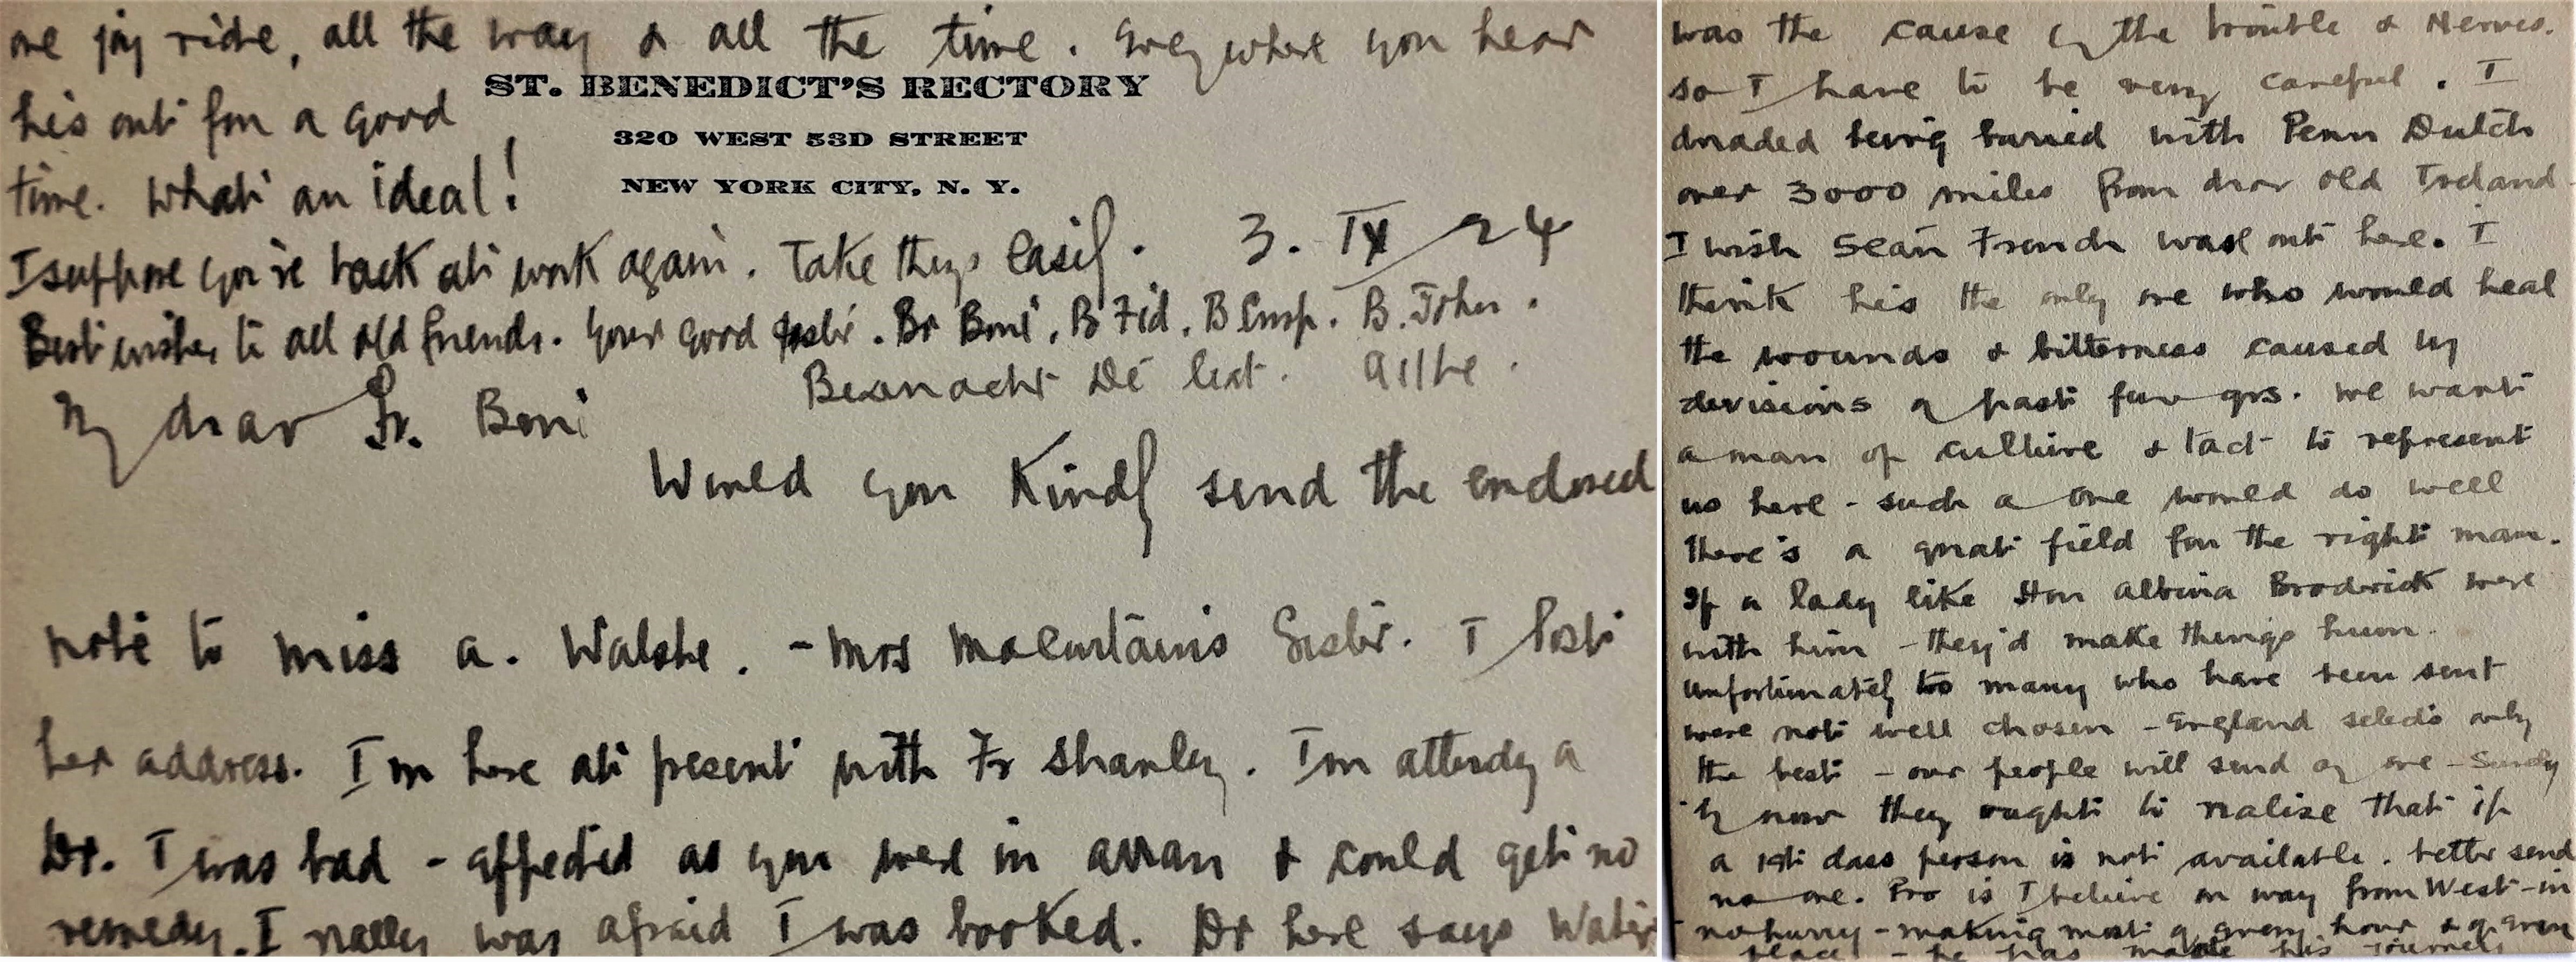 one joy ride, all the way & all the time. Everywhere you hear
ST. BENEDICT'S RECTORY
his out for a good
320 WEST 53D STREET
time. What an ideal!
NEW YORK CITY, N. Y.
I suppose you're back at work again. Take things easily. 3. IX 24
Best wishes to all old friends. Your good sister. Br Boni, B Fid, B Crisp. B. John.
Beannacht Dé leat. Ailbe.
My dear Fr. Boni
Would you Kindly send the enclosed
note to Miss A. Walshe. - Mrs MacCurtain's Sister. I lost
her address. I'm here at present with Fr Shanley. I'm attendg a
Dr. I was bad - affected as you were in Arran & could get no
remedy. I really was afraid I was booked. Dr here says Water
was the cause of the trouble & Nerves.
so I have to be very careful. I
dreaded being buried with Penn Dutch
over 3000 miles from dear old Ireland.
I wish Seán French was out here. I
think his the only one who would heal
the wounds & bitterness caused by
divisions of past few yrs. We want
a man of culture & tact to represent
us here - such a one would do well
there's a great field for the right man.
If a lady like Hon Albina Broderick were
with him - they'd make things hum.
Unfortunately too many who have been sent
were not well chosen - England selects only
the best - our people will send any one - Surely
by now they ought to realise that if
a 1st class person is not available. better send
no one. Pro is I believe on way from West - in
no hurry - making most of every hour & of every
place - he has made his journey